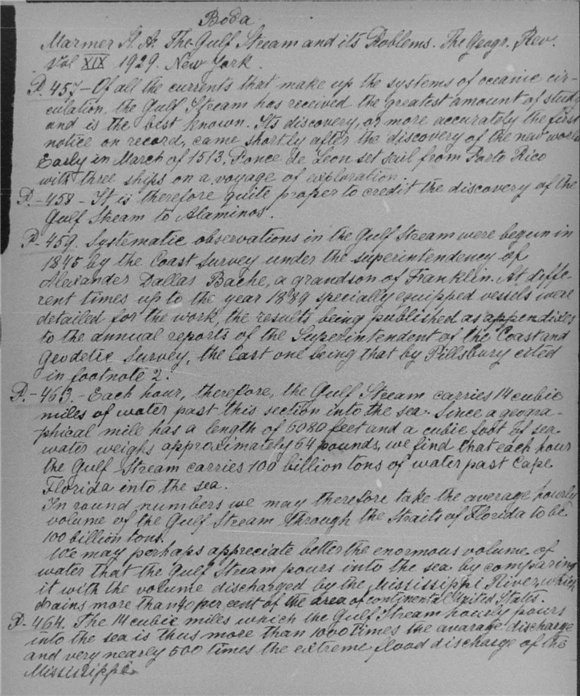 Boda
Marmer H. A. The Gulf Stream and its Problems. The Geogr. Rev.
Vol XIX 1929. New York.
P. 457 - Of all the currents that make up the systems of oceanic cir-
culation, the Gulf Stream has received the greatest amount of study
and is the best known. Its discovery, or more accurately the first
notice on record, came shortly after the discovery of the new world
Early in March of 1513, Ponce de Leon set sail from Porto Rico
with three ships on a voyage of exploration.
P. - 458 - It is therefore quite proper to credit the discovery of the
Gulf Stream to Alaminos.
P. 459. Systematic observations in the Gulf Stream were begun in
1845 by the Coast Survey under the superintendency of
Alexander Dallas Bache, a grandson of Franklin. At diffe-
rent times up to the year 1889 specially equipped vessels were
detailed for the work, the results being published as appendixes
to the annual reports of the Superintendent of the Coast and
Geodetic Survey, the last one being that by Pillsbury cited
in footnote 2.
P. - 463. - Each hour, therefore, the Gulf Stream carries 14 cubic
miles of water past this section into the sea. Since a geogra-
phical mile has a length of 6080 feet and a cubic foot of sea-
water weighs approximately 64 pounds, we find that each hour
the Gulf Stream carries 100 billion tons of water past Cape
Florida into the sea.
In round numbers we may therefore take the average hourly
volume of the Gulf Stream through the Straits of Florida to be
100 billion tons.
We may perhaps appreciate better the enormous volume of
water that the Gulf Stream pours into the sea by comparing
it with the volume discharged by the Mississippi River, which
drains more than per cent of the area of continental United States.
P. - 464. The 14 cubic miles which the Gulf Stream hourly hours
into the sea is thus more than 1000 times the avarage discharge
and very nearly 500 times the extreme flood discharge of the
Mississippi.